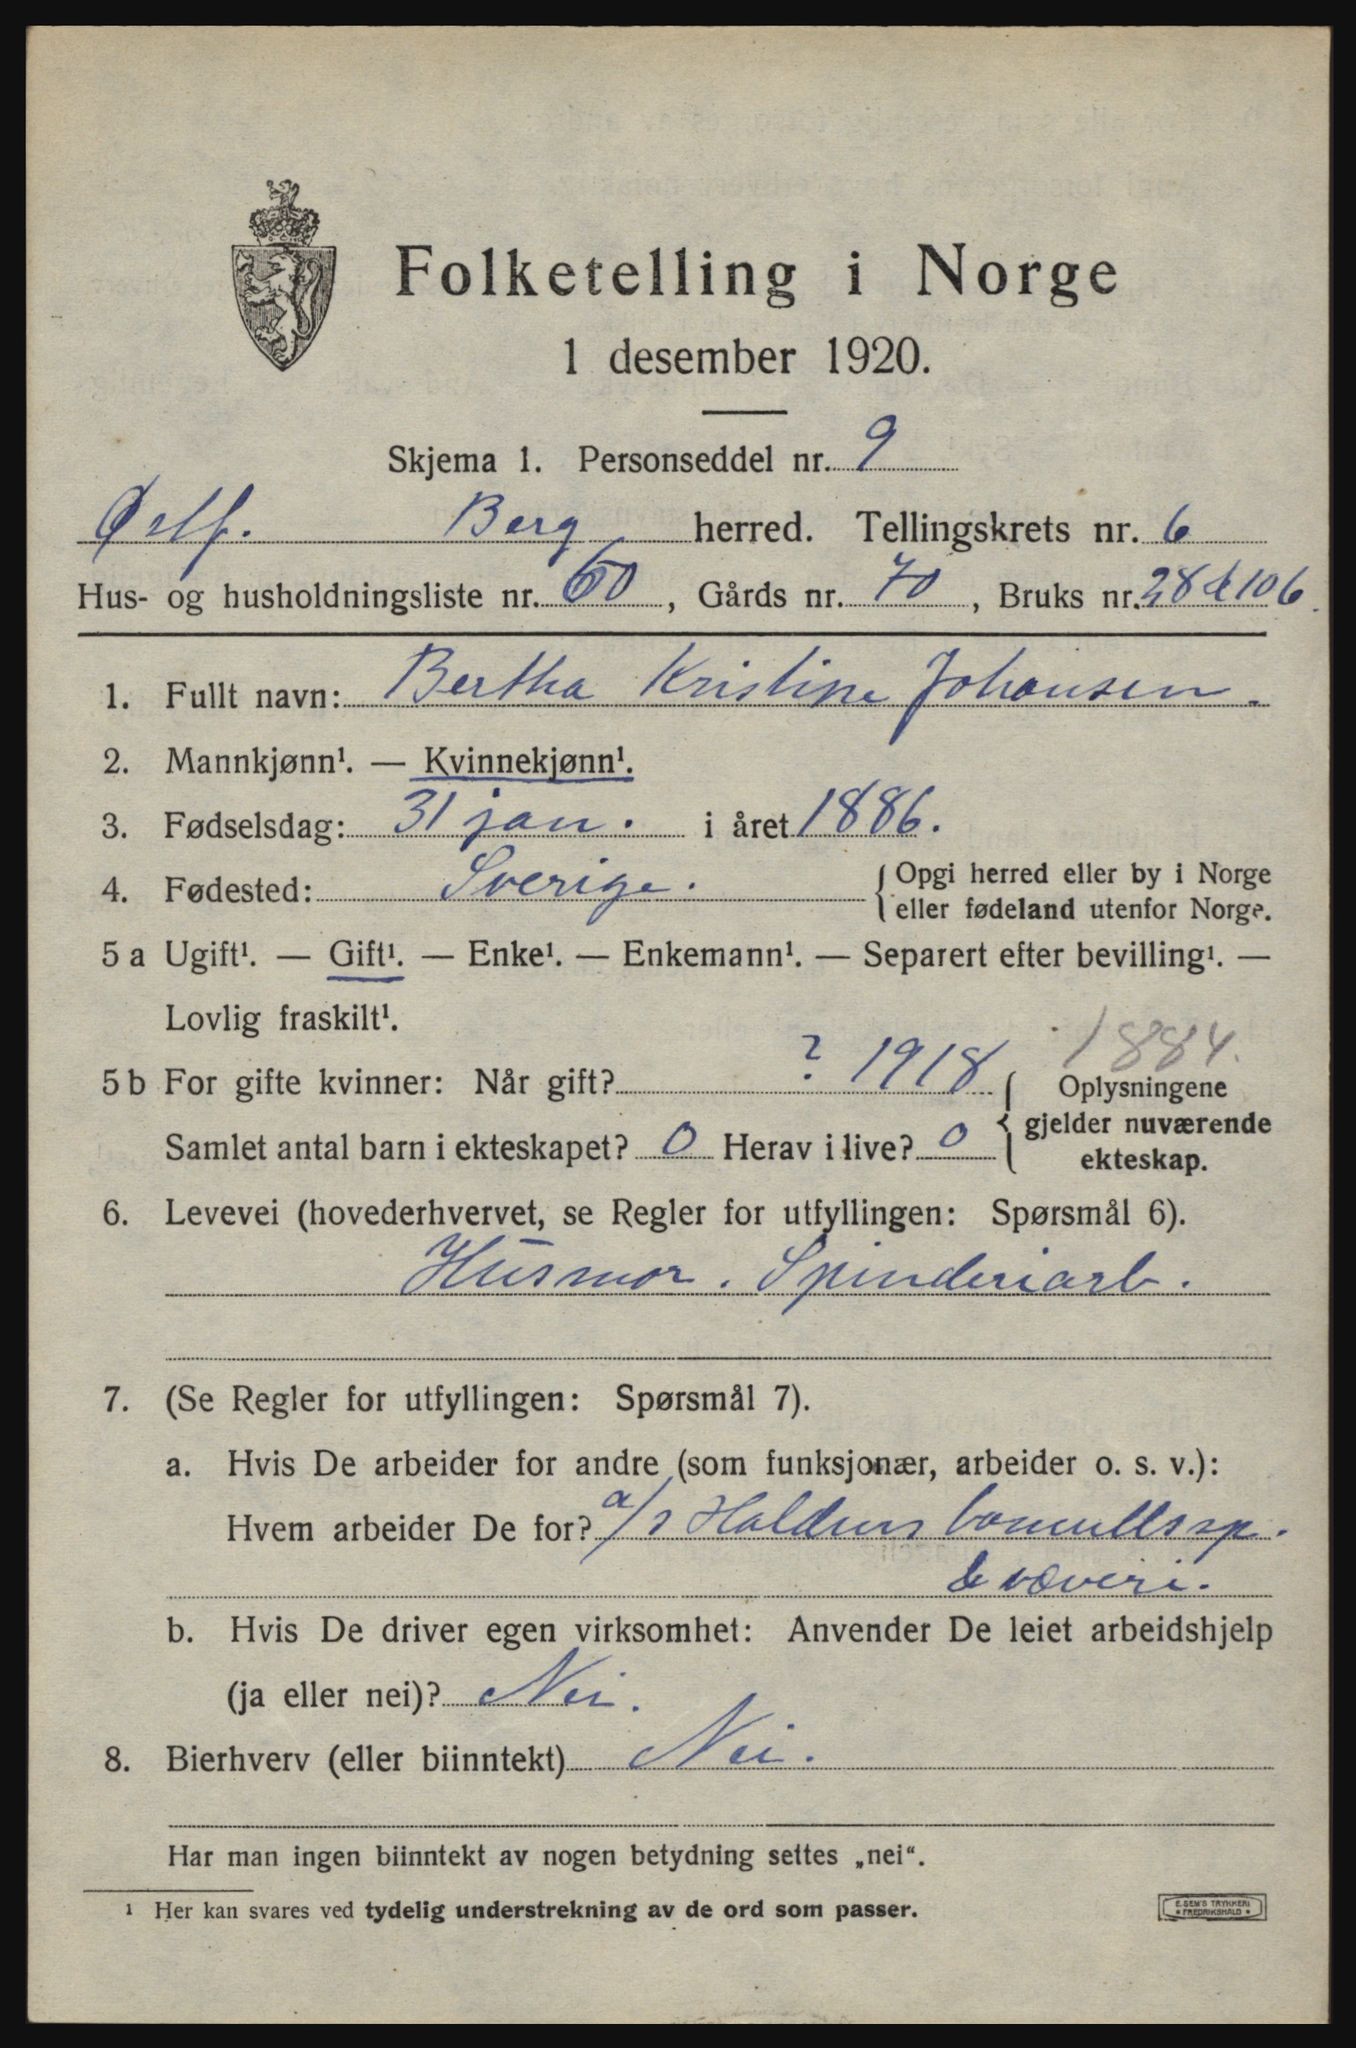 Folketelling i Norge
1 desember 1920.
Skjema 1. Personseddel nr. 9
Østf. Berg herred. Tellingskrets nr. 6
Hus- og husholdningsliste nr. 60, Gårds nr. 70, Bruks nr. 28 & 106.
1. Fullt navn: Bertha Kristine Johansen.
2. Mannkjønn¹. — Kvinnekjønn¹.
3. Fødselsdag: 31 jan. i året 1886.
4. Fødested: Sverige. { Opgi herred eller by i Norge
eller fødeland utenfor Norge.
5 a Ugift¹. — Gift¹. — Enke¹. — Enkemann¹. — Separert efter bevilling¹. —
Lovlig fraskilt¹.
1884.
5 b For gifte kvinner: Når gift? ? 1918 { Oplysningene
gjelder nuværende
Samlet antal barn i ekteskapet? 0 Herav i live? 0
ekteskap.
6. Levevei (hovederhvervet, se Regler for utfyllingen: Spørsmål 6).
Husmor. Spinderiarb.
7. (Se Regler for utfyllingen: Spørsmål 7).
a. Hvis De arbeider for andre (som funksjonær, arbeider o. s. v.):
Hvem arbeider De for? a/s Haldens bomullssp.
& væveri.
b. Hvis De driver egen virksomhet: Anvender De leiet arbeidshjelp
(ja eller nei)? Nei.
8. Bierhverv (eller biinntekt) Nei.
Har man ingen biinntekt av nogen betydning settes „nei“.
¹ Her kan svares ved tydelig understrekning av de ord som passer.
E. SEM'S TRYKKERI
* FREDRIKSHALD *